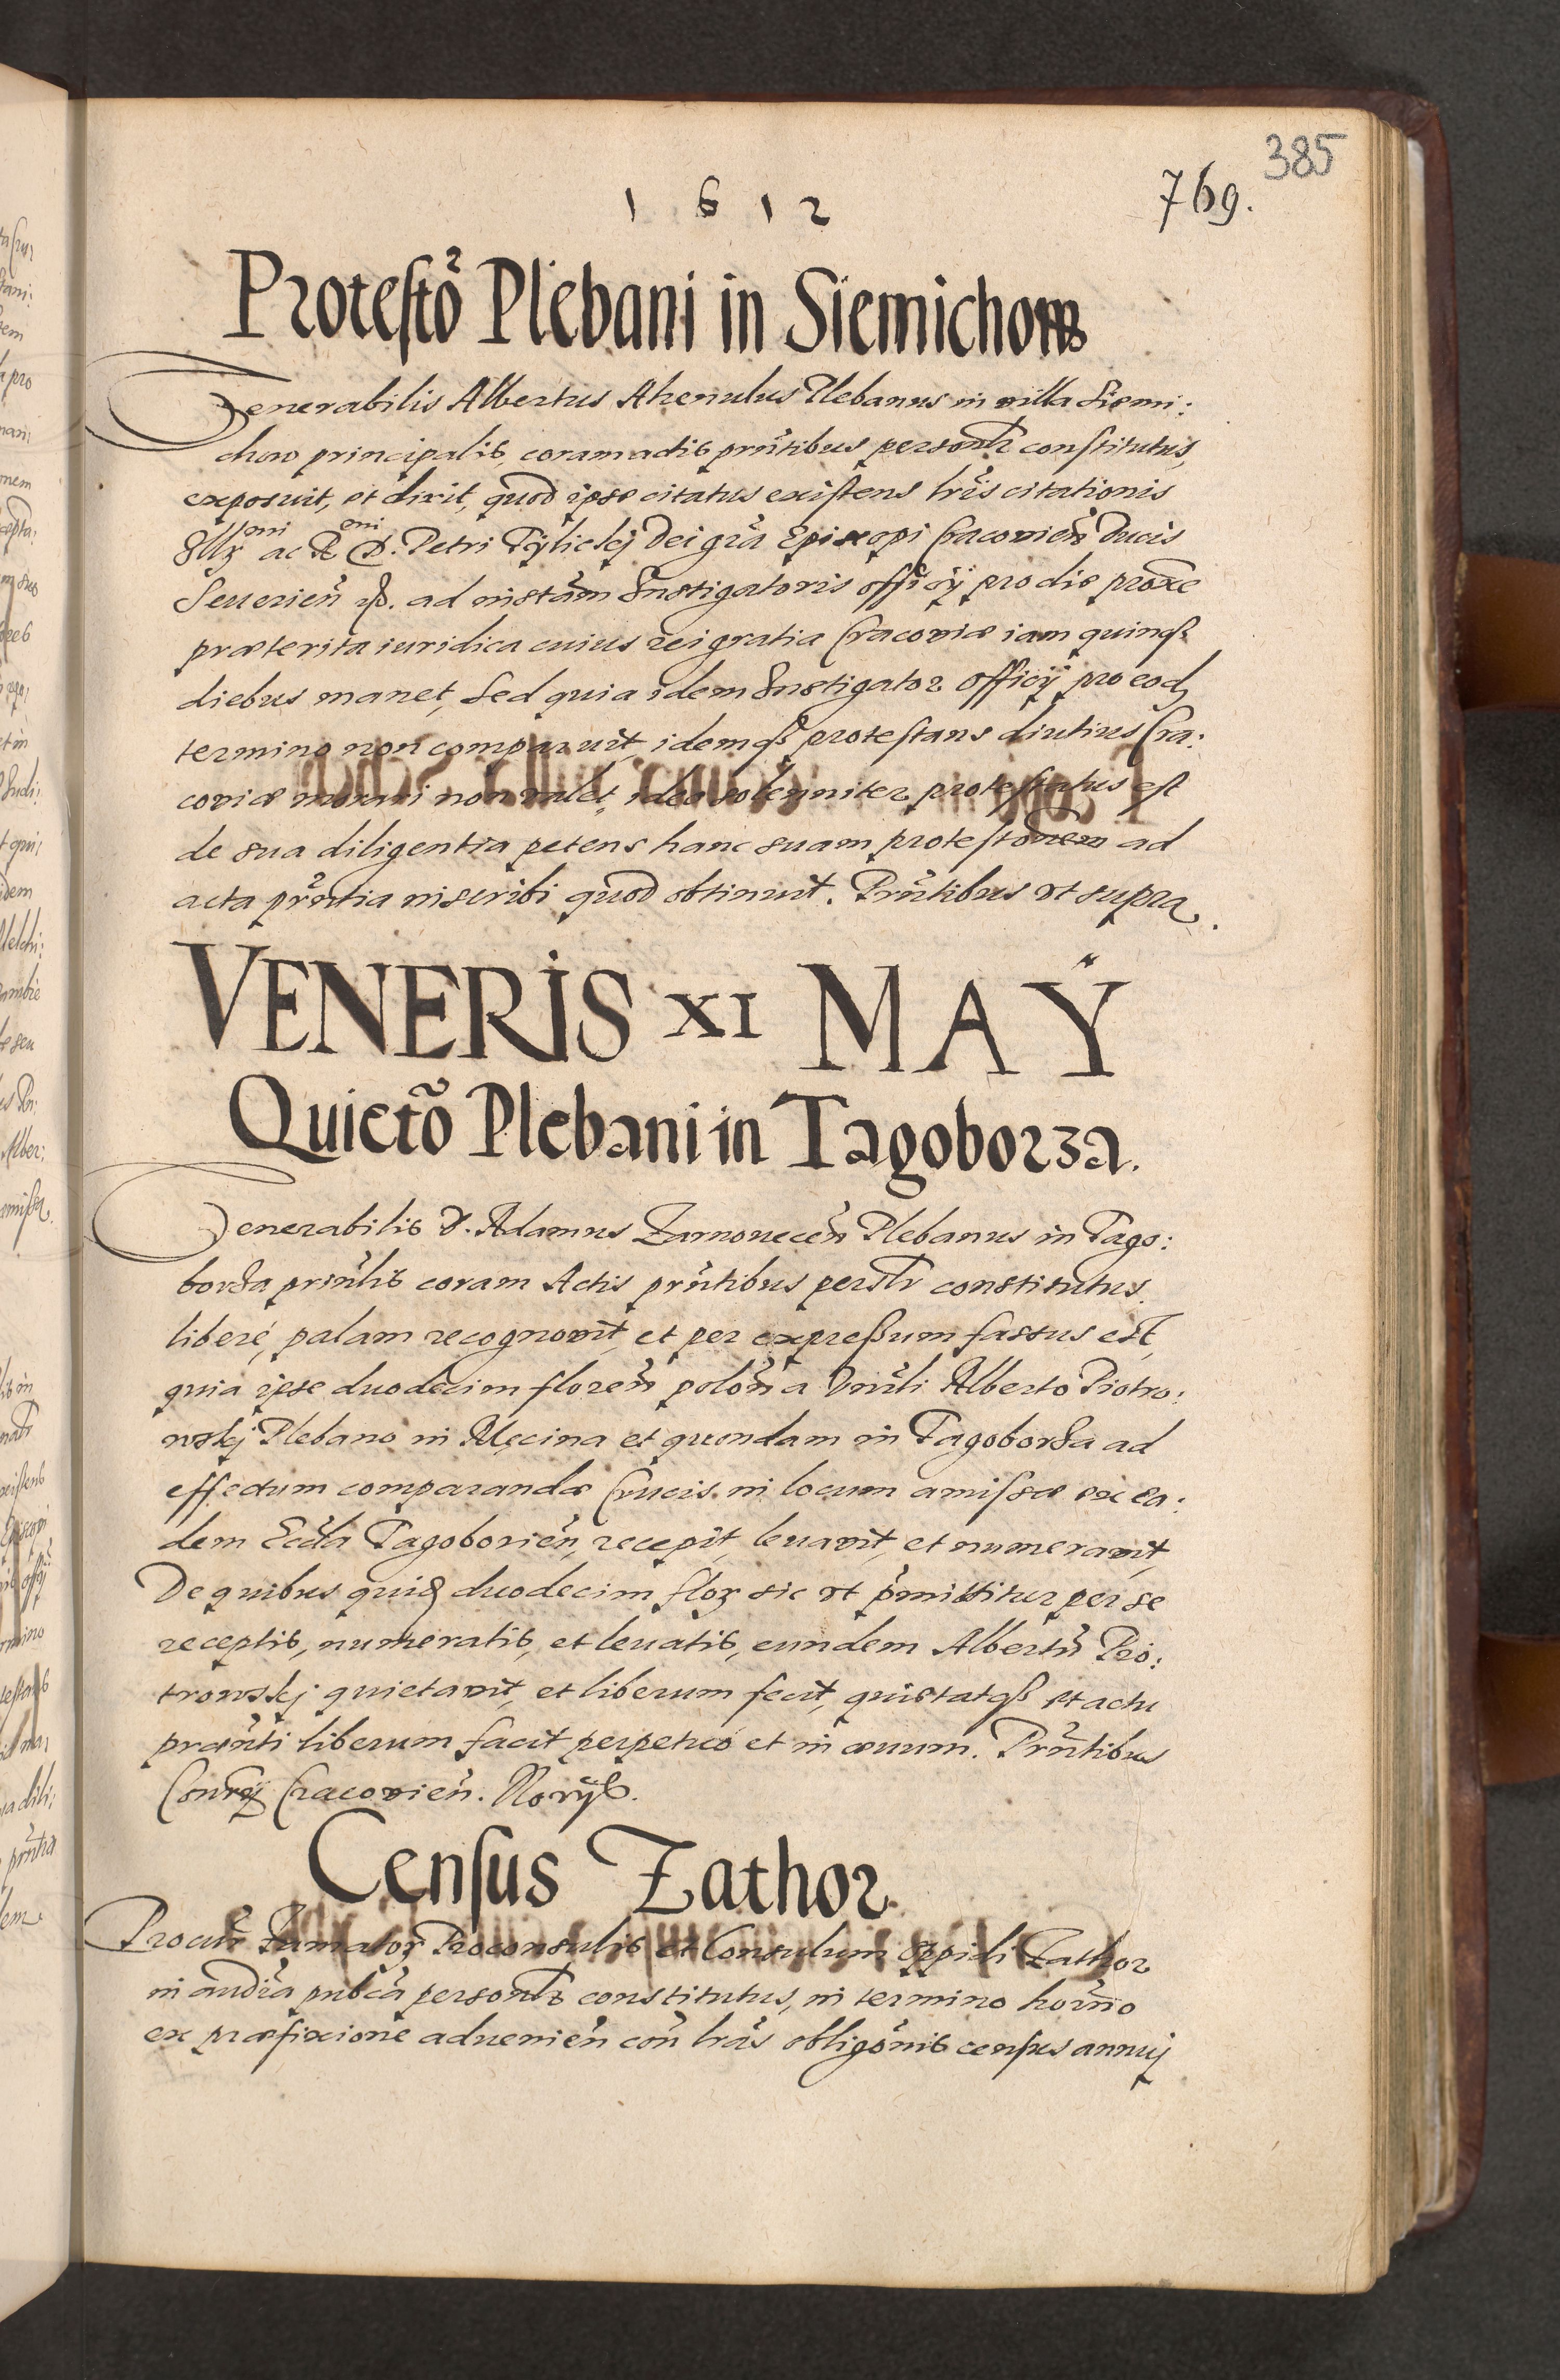 385
1612
769.
Protestõ Plebani in Siemichow
Venerabilis Albertus Ahenulus Plebanus in villa Siemi:
chow principalis, coram actis prñtibus personlr constitutus,
exposuit, et dixit, quod ipse citatus existens lrĩs citationis
Illmi ac R dni D. Petri Tylickj Dei grã Episcopi Cracovieñ Ducis
Severieñ &. ad instãm Instigatoris officÿ pro die proxe
præterita iuridica cuius rei gratia Cracoviæ iam quinqꝫ
diebus manet, sed quia idem Instigator officÿ pro eod
termino non comparuit, idemqꝫ protestans diutius Cra:
coviæ morari non valet, ideo solenniter protestatus est
de sua diligentia petens hanc suam protestõnem ad
acta prñtia inscribi quod obtinuit. Prñtibus ut supra.
VENERIS XI MAŸ
Quietõ Plebani in Tagoborza.
Venerabilis D. Adamus Zarnoveceñ Plebanus in Tago:
borza prinlis coram Actis prñtibus perslr constitutus
liberé, palam recognovit, et per expreßum fassus est,
quia ipse duodecim floreñ poloñ a Vnrli Alberto Piotro:
wskj Plebano in Męcina et quondam in Tagoborza ad
effectum comparandæ Crucis in locum amissæ ex ea:
dem Eccla Tagoborieñ, recepit, levavit, et numeravit,
De quibus quidem duodecim floꝝ sic ut pmittitur per se
receptis, numeratis, et levatis, eundem Albertũ Pio:
trowskj quietavit, et liberum fecit, quietatqꝫ et actu
præñti liberum facit perpetuo et in ævum. Prñtibus
Cracovieñ. Norijs.
Census Zathor
Procur Famator Proconsulis et Consulum oppidi Zathor
in audĩa pubcã personlr constitutus, in termino horño
ex præfixione advenieñ coñ lrãs obligõnis census annuj